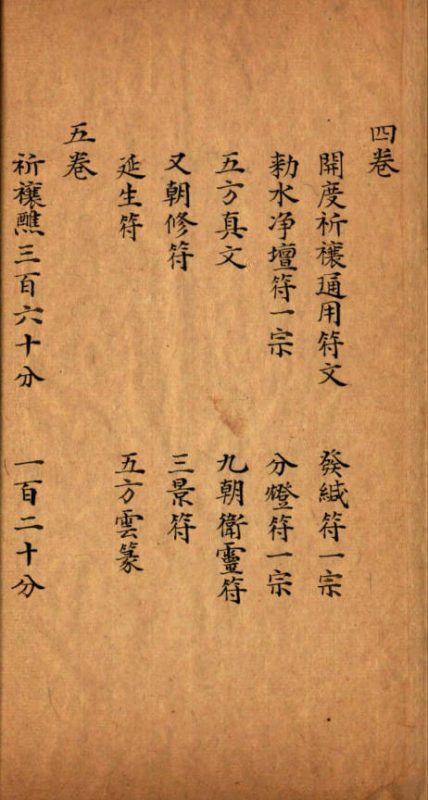 四卷
開度祈禳通用符文　發緘符一宗
勑水净壇符一宗　分燈符一宗
五方真文　九朝衛靈符
又朝修符　三景符
延生符　五方雲篆
五卷
祈禳醮三百六十分　一百二十分